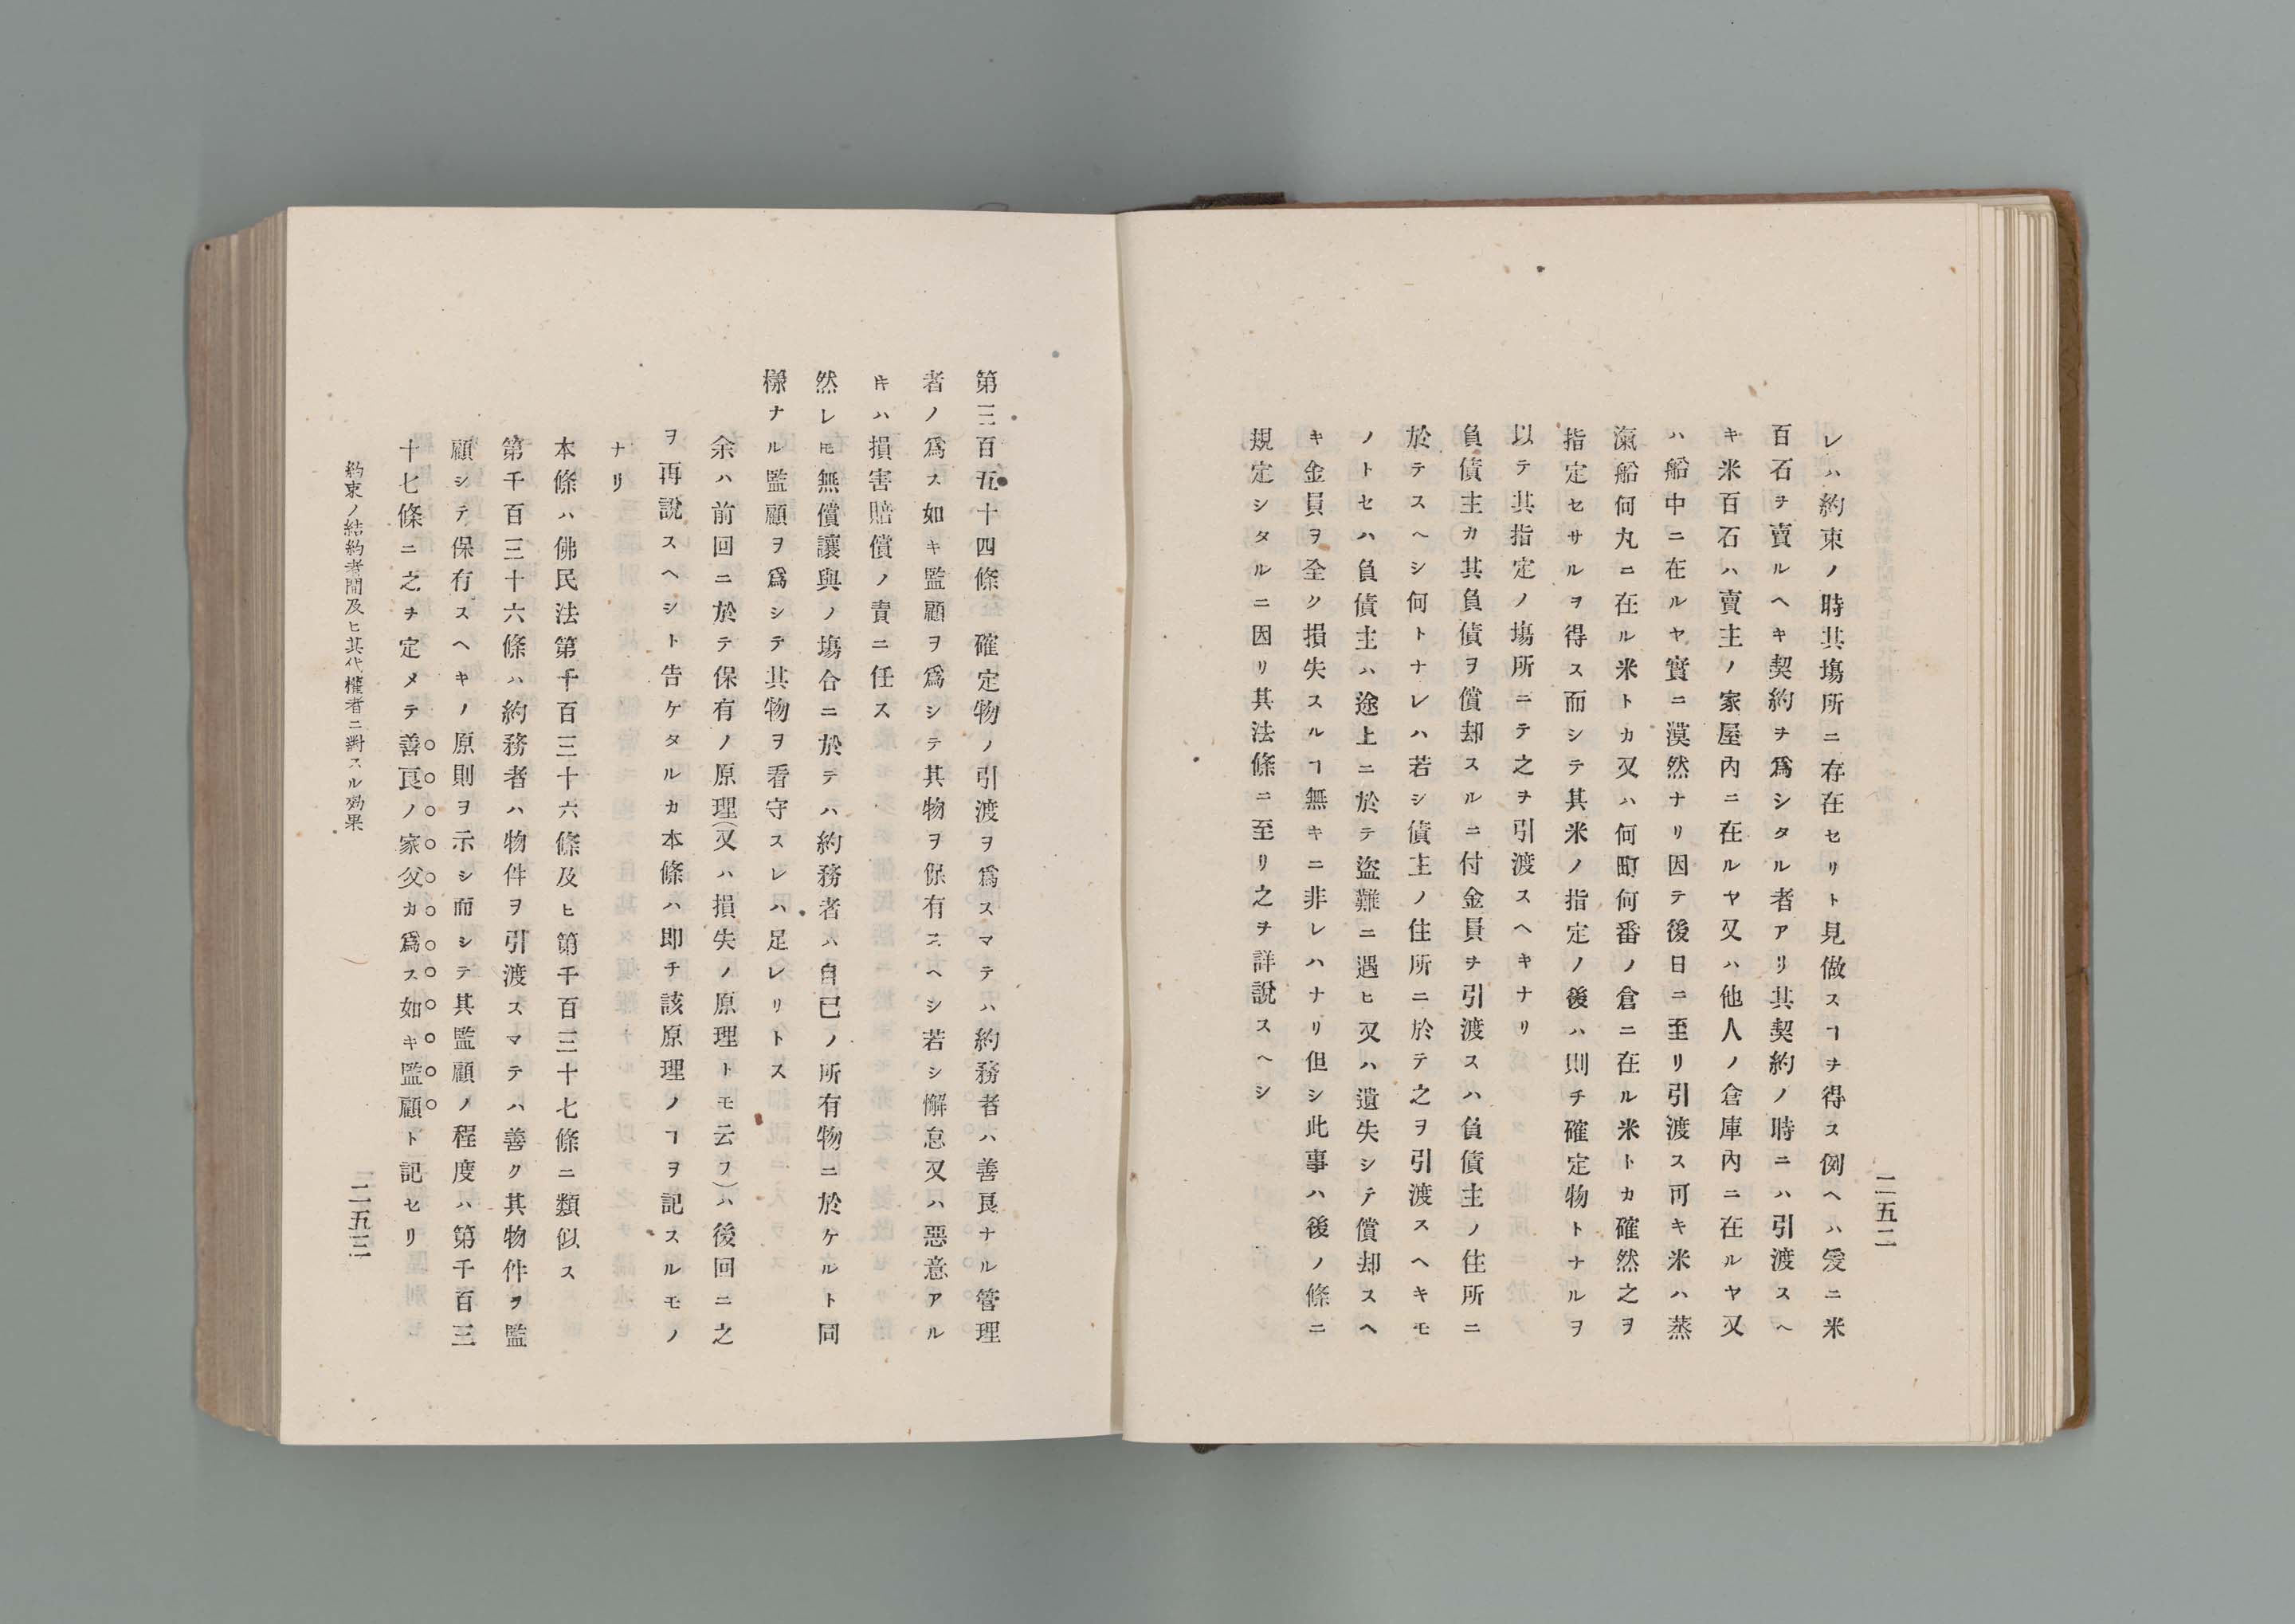 レハ約束ノ時其塲所ニ存在セリト見做スヿヲ得ス例ヘハ爰ニ米
百石ヲ賣ルヘキ契約ヲ爲シタル者アリ其契約ノ時ニハ引渡スヘ
キ米百石ハ賣主ノ家屋內ニ在ルヤ又ハ他人ノ倉庫內ニ在ルヤ又
ハ船中ニ在ルヤ實ニ漠然ナリ因テ後日ニ至リ引渡ス可キ米ハ蒸
滊船何丸ニ在ル米トカ又ハ何町何番ノ倉ニ在ル米トカ確然之ヲ
指定セサルヲ得ス而シテ其米ノ指定ノ後ハ則チ確定物トナルヲ
以テ其指定ノ塲所ニテ之ヲ引渡スヘキナリ
負債主カ其負債ヲ償却スルニ付金員ヲ引渡スハ負債主ノ住所ニ
於テスヘシ何トナレハ若シ債主ノ住所ニ於テ之ヲ引渡スヘキモ
ノトセハ負債主ハ途上ニ於テ盜難ニ遇ヒ又ハ遺失シテ償却スヘ
キ金員ヲ全ク損失スルヿ無キニ非レハナリ但シ此事ハ後ノ條ニ
規定シタルニ因リ其法條ニ至リ之ヲ詳說スヘシ
二五二
第三百五十四條　確定物ノ引渡ヲ爲スマテハ約務者ハ善良ナル管理
者ノ爲ス如キ監顧ヲ爲シテ其物ヲ保有スヘシ若シ懈怠又ハ惡意アル
𪜈ハ損害賠償ノ責ニ任ス
然レ𪜈無償讓與ノ塲合ニ於テハ約務者ハ自已ノ所有物ニ於ケルト同
樣ナル監顧ヲ爲シテ其物ヲ看守スレハ足レリトス
余ハ前回ニ於テ保有ノ原理(又ハ損失ノ原理トモ云フ)ハ後回ニ之
ヲ再說スヘシト告ケタルカ本條ハ即チ該原理ノヿヲ記スルモノ
ナリ
本條ハ佛民法第千百三十六條及ヒ第千百三十七條ニ類似ス
第千百三十六條ハ約務者ハ物件ヲ引渡スマテハ善ク其物件ヲ監
顧シテ保有スヘキノ原則ヲ示シ而シテ其監顧ノ程度ハ第千百三
十七條ニ之ヲ定メテ善良ノ家父カ爲ス如キ監顧ト記セリ
約束ノ結約者間及ヒ其代權者ニ對スル効果
二五三